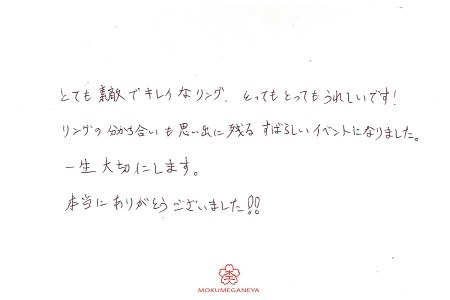 とても素敵でキレイなリング、とってもとってもうれしいです！
リングの分かち合いも思い出に残るすばらしいイベントになりました。
一生大切にします。
本当にありがとうございました!!
MOKUMEGANEYA